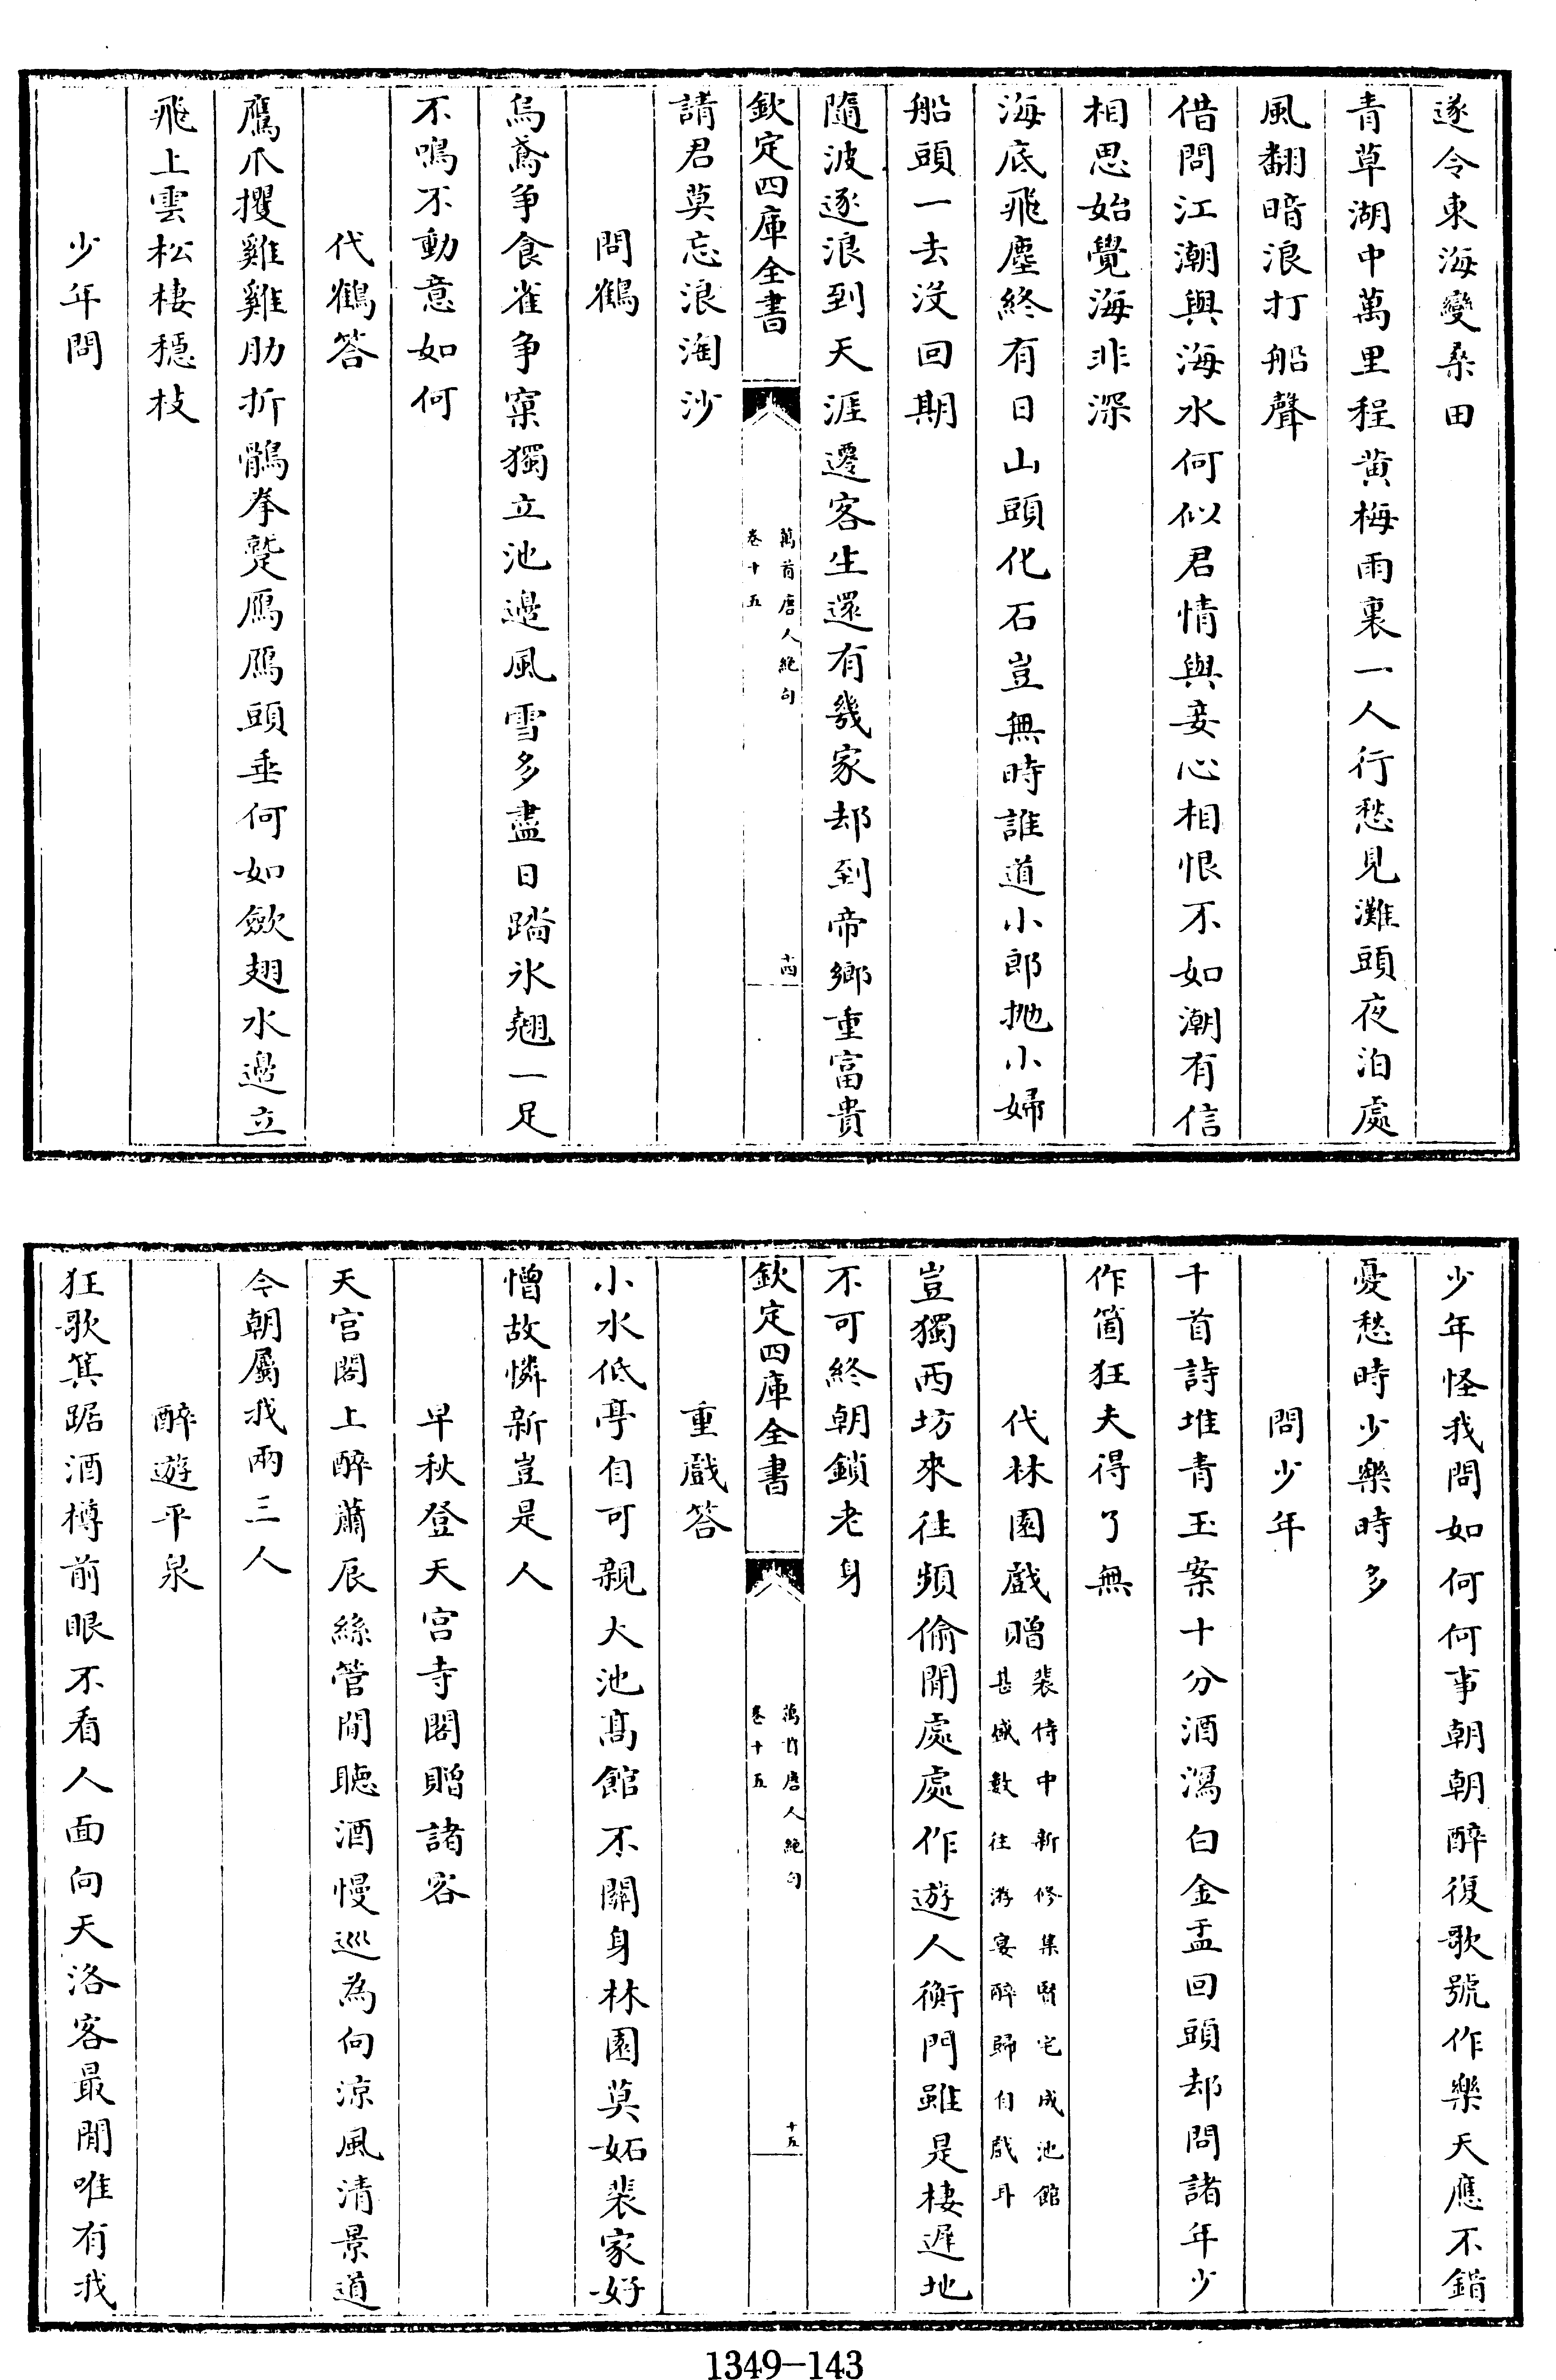 遂令東海變桑田
青草湖中萬里程黄梅雨裏一人行愁見灘頭夜泊處
風翻暗浪打船聲
借問江潮與海水何似君情與妾心相恨不如潮有信
相思始覺海非深
海底飛塵終有日山頭化石豈無時誰道小郎抛小婦
船頭一去没回期
隨波逐浪到天涯遷客生還有幾家却到帝鄉重富貴
欽定四庫全書
萬首唐人絶句
卷十五
十四
請君莫忘浪淘沙
問鶴
烏鳶争食雀争窠獨立池邊風雪多盡日踏氷翹一足
不鳴不動意如何
代鶴答
鷹爪攫雞雞肋折鶻拳蹙鴈鴈頭垂何如斂翅水邊立
飛上雲松棲穩枝
少年問
少年怪我問如何何事朝朝醉復歌號作樂天應不錯
憂愁時少樂時多
問少年
千首詩堆青玉案十分酒瀉白金盂回頭却問諸年少
作箇狂夫得了無
代林園戲贈
裴侍中新修集賢宅成池館
甚盛數往游宴醉歸自戲耳
豈獨西坊來往頻偷閒處處作遊人衡門雖是棲遲地
不可終朝鎖老身
欽定四庫全書
萬首唐人絶句
卷十五
十五
重戲答
小水低亭自可親大池髙館不關身林園莫妬裴家好
憎故憐新豈是人
早秋登天宫寺閣贈諸客
天宫閣上醉蕭辰絲管閒聽酒慢巡為向涼風清景道
今朝屬我兩三人
醉遊平泉
狂歌箕踞酒樽前眼不看人面向天洛客最閒唯有我
1349-143